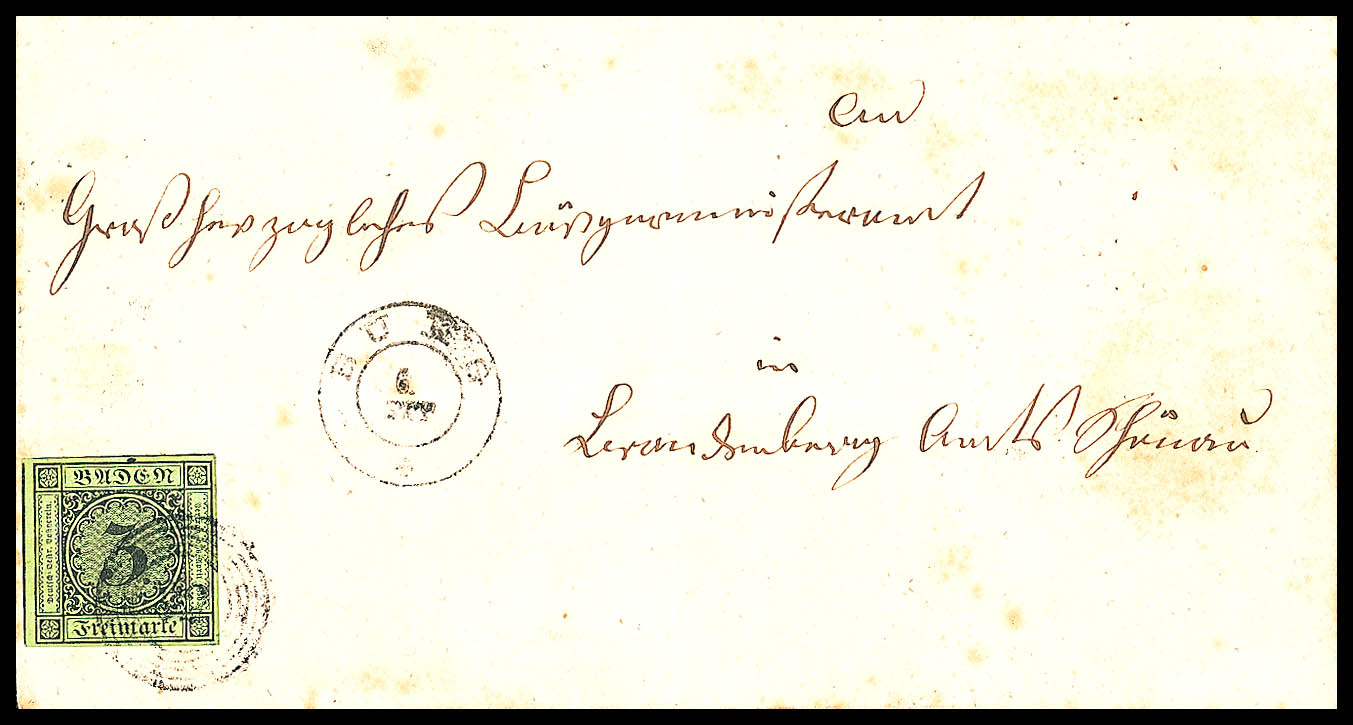 An
Großherzogliches Bürgermeisteramt
in
Brandenberg Amts Schönau
BURG
6.
BADEN
Deutsch-Oestr. Postverein.
3.
Freimarke